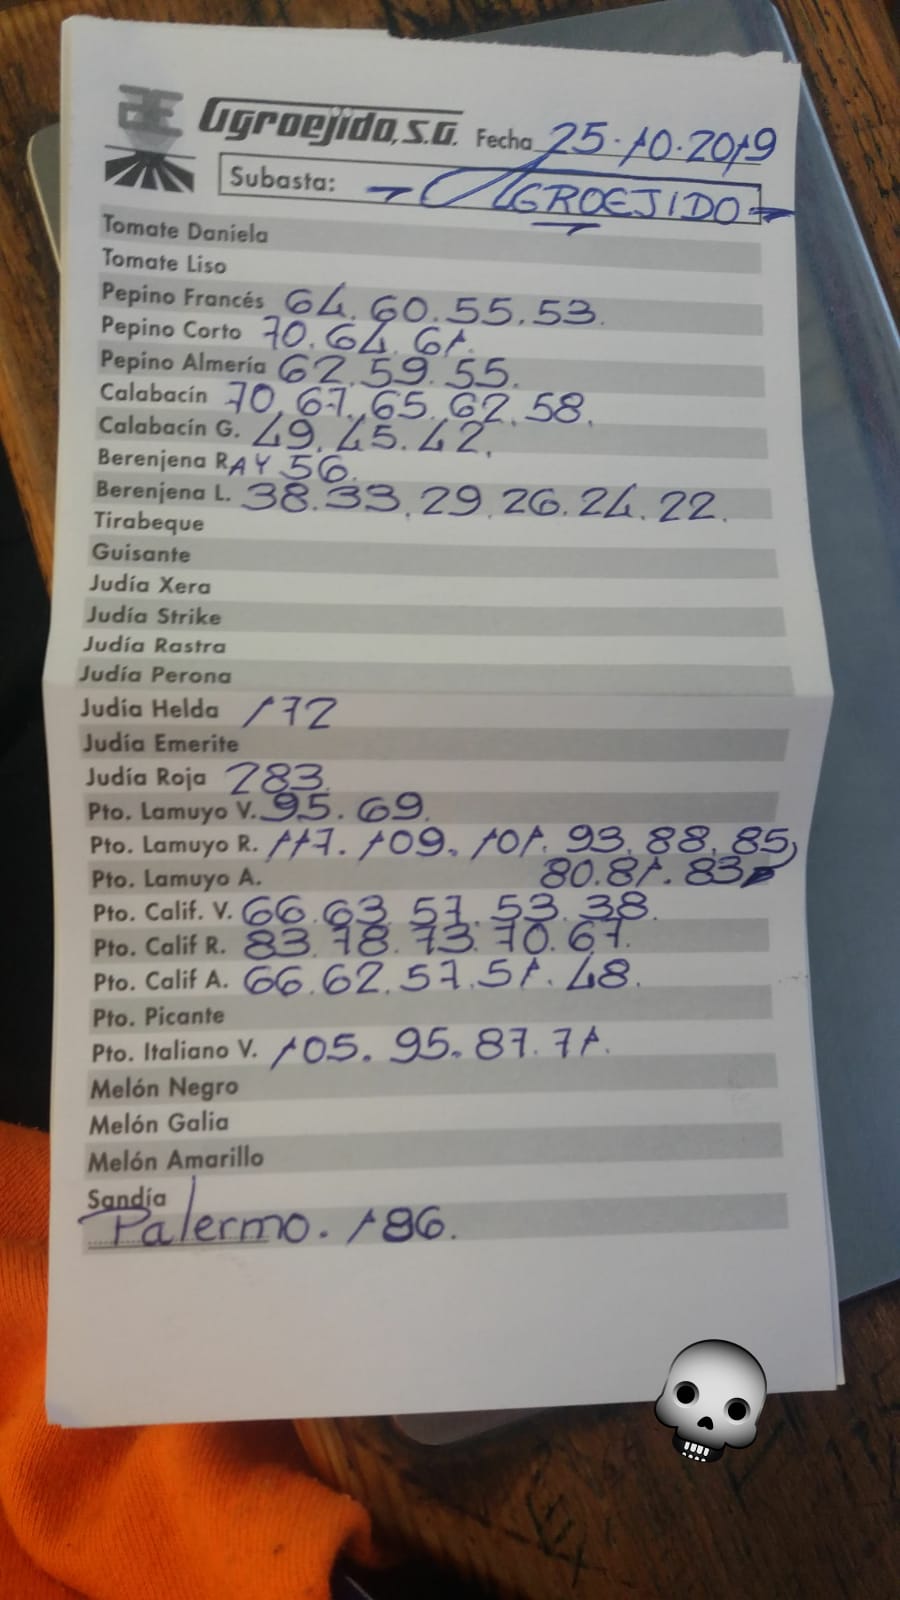 Agroejido, S.A. Fecha 25.10.2019
Subasta: AGROEJIDO
Tomate Daniela
Tomate Liso
Pepino Francés 64. 60. 55. 53.
Pepino Corto 70. 64. 61.
Pepino Almería 62. 59. 55.
Calabacín 70. 67. 65. 62. 58.
Calabacín G. 49. 45. 42.
Berenjena RAY 56.
Berenjena L. 38. 33. 29. 26. 24. 22.
Tirabeque
Guisante
Judía Xera
Judía Strike
Judía Rastra
Judía Perona
Judía Helda 172
Judía Emerite
Judía Roja 283.
Pto. Lamuyo V. 95. 69.
Pto. Lamuyo R. 117. 109. 101. 93. 88. 85,
Pto. Lamuyo A. 80. 81. 83
Pto. Calif. V. 66. 63. 57. 53. 38.
Pto. Calif R. 83. 78. 73. 70. 67.
Pto. Calif A. 66. 62. 57. 51. 48.
Pto. Picante
Pto. Italiano V. 105. 95. 87. 71.
Melón Negro
Melón Galia
Melón Amarillo
Sandía
Palermo. 186.